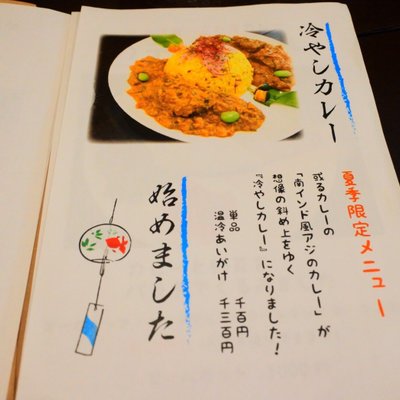 冷やしカレー
始めました
夏季限定メニュー
残るカレーの
「南インド風アジのカレー」が
想像の斜め上をゆく
『冷やしカレー』になりました！
単品 千百円
温冷あいがけ 千三百円